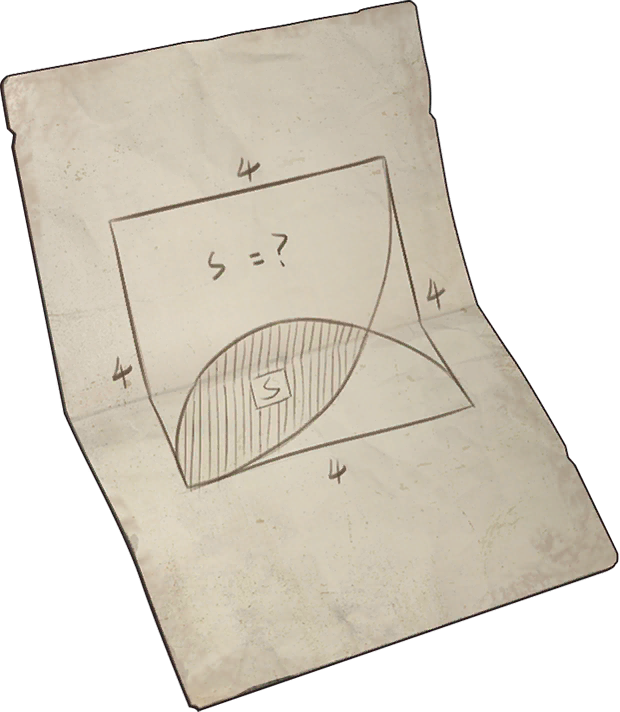 4
S = ?
4
4
S
4